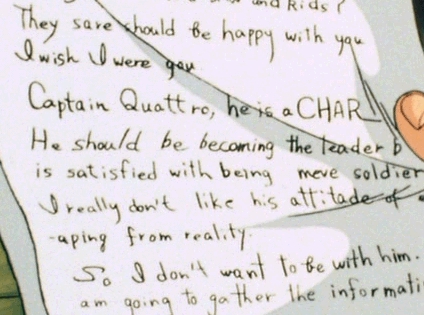 and kids?
They sare should be happy with you
I wish I were you
Captain Quattro, he is a CHAR
He should be becoming the leader b
is satisfied with being meve soldier
I really don't like his attitade of
-aping from reality.
So I don't want to be with him.
am going to gather the informati